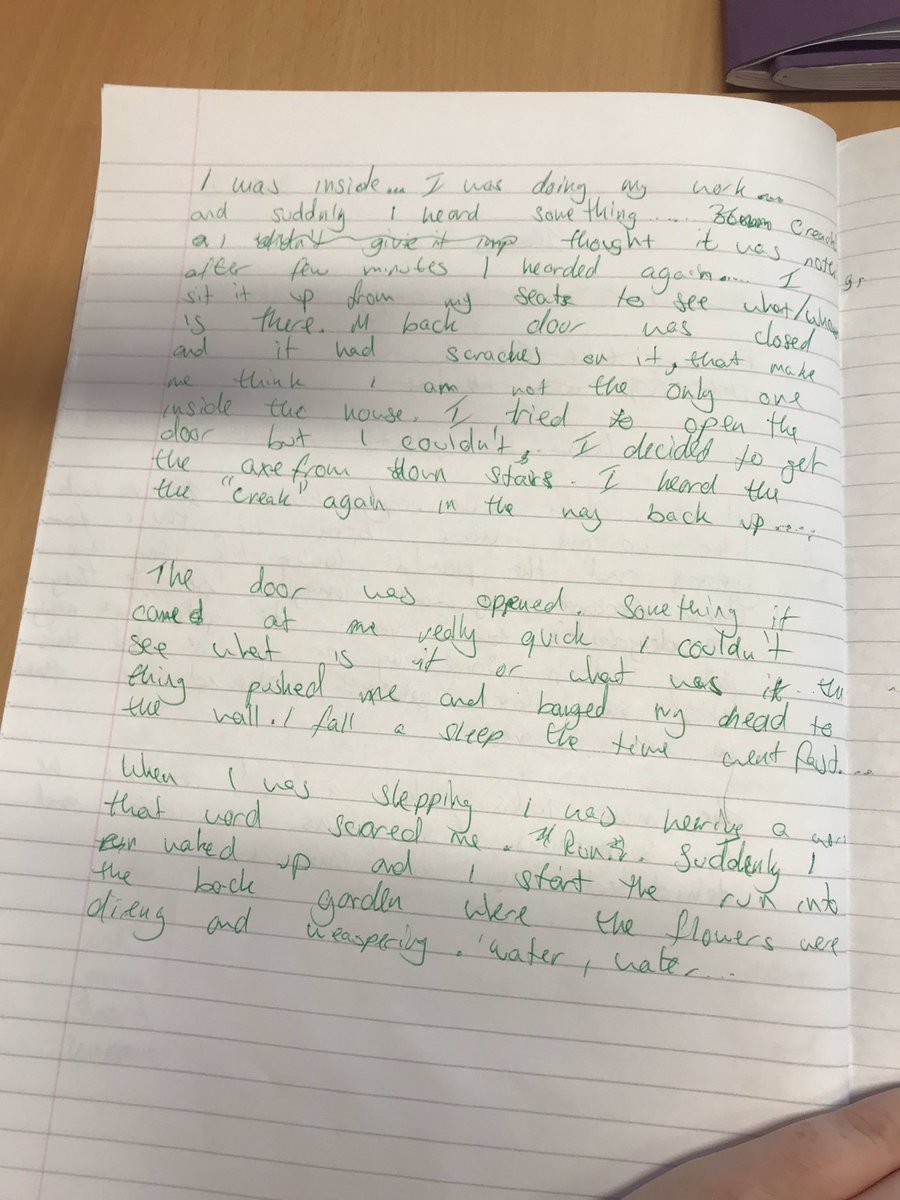 I was inside... I was doing my work....
and suddnly I heard something..... Creack
a I thought it was nothing
after few minutes I hearded again..... I
sit it up from my seats to see what/who
is there. M back door was closed
and it had scraches on it, that make
me think I am not the only one
inside the house. I tried to open the
door but I couldn't, I decided to get
the axe from down stairs. I heard the
the "creak" again in the way back up.....
The door was oppened. Something it
came at me really quick I couldn't
see what is it or what was it the
thing pushed me and banged my head to
the wall. I fall a sleep the time went fast....
When I was slepping I was hearing a
that word scared me. "Run". Suddenly I
waked up and I start the run into
the back garden were the flowers were
dieng and weaspering. 'water, water...